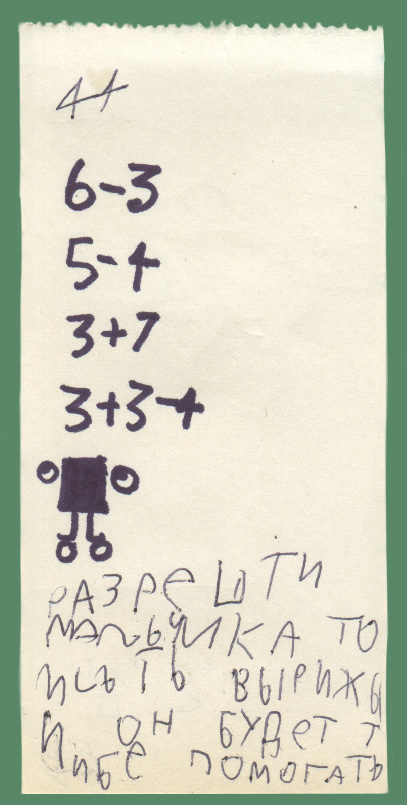 4+
6-3
5-4
3+7
3+3-4
РАЗРЕШТИ
МАЛЬЧИКА ТО
ИСЬТЬ ВЫРИЖЫ
И ОН БУДЕТ Т
ИИБЕ ПОМОГАТЬ